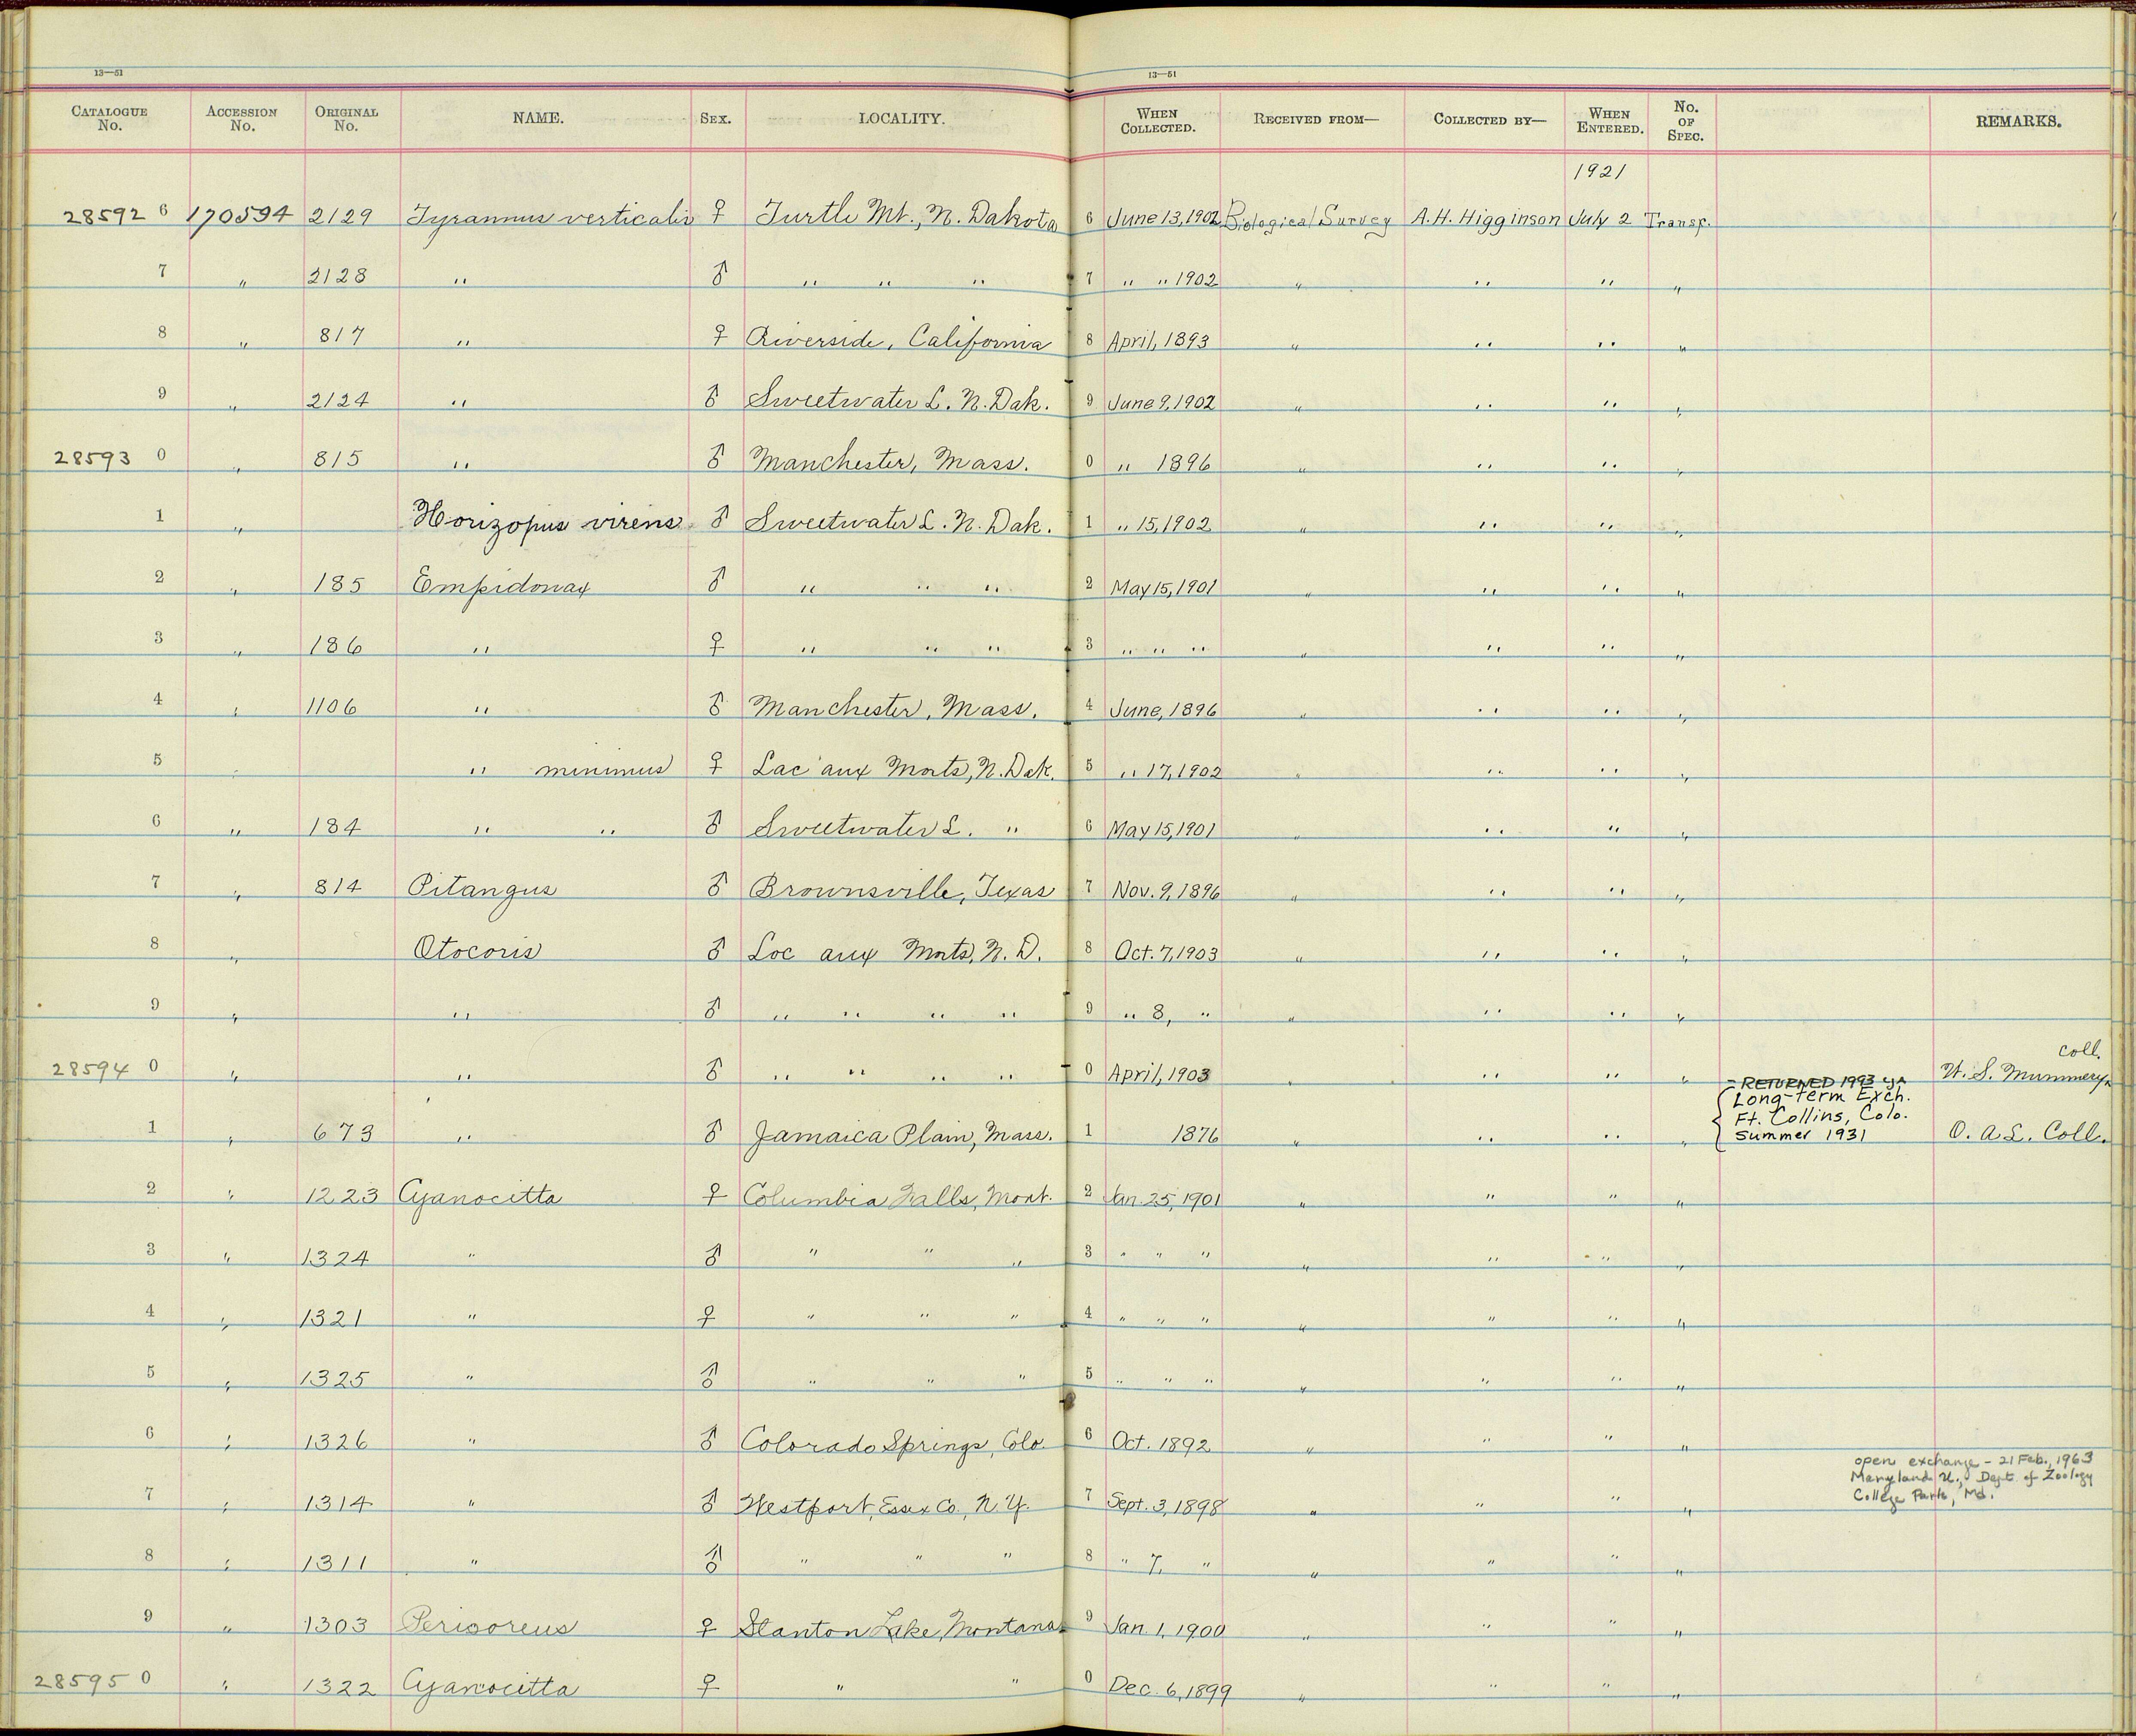 13—51 13—51
CATALOGUE No. ACCESSION No. ORIGINAL No. NAME. SEX. LOCALITY. WHEN COLLECTED. RECEIVED FROM— COLLECTED BY— WHEN ENTERED. No. OF SPEC. REMARKS.
1921
28592 6 170594 2129 Tyrannus verticalis ♀ Turtle Mt., N. Dakota 6 June 13, 1902 Biological Survey A.H. Higginson July 2 Transf.
7 " 2128 " ♂ " " " 7 " " 1902 " " " "
8 " 817 " ♀ Riverside, California 8 April, 1893 " " " "
9 " 2124 " ♂ Sweetwater L. N. Dak. 9 June 9, 1902 " " " "
28593 0 " 815 " ♂ Manchester, Mass. 0 " 1896 " " " "
1 " Horizopus virens ♂ Sweetwater L. N. Dak. 1 " 15, 1902 " " " "
2 " 185 Empidonax ♂ " " " 2 May 15, 1901 " " " "
3 " 186 " ♀ " " " 3 " " " " " " "
4 " 1106 " ♂ Manchester, Mass. 4 June, 1896 " " " "
5 " " minimus ♀ Lac aux Morts, N. Dak. 5 " 17, 1902 " " " "
6 " 184 " " ♂ Sweetwater L. " 6 May 15, 1901 " " " "
7 " 814 Pitangus ♂ Brownsville, Texas 7 Nov. 9, 1896 " " " "
8 " Otocoris ♂ Loc aux Morts, N. D. 8 Oct. 7, 1903 " " " "
9 " " ♂ " " " " 9 " 8, " " " " "
28594 0 " " ♂ " " " " 0 April, 1903 " " " " coll. W. S. Mummery
1 " 673 " ♂ Jamaica Plain, Mass. 1 1876 " " " " O. A. L. Coll.
- RETURNED 1993
Long-term Exch.
Ft. Collins, Colo.
summer 1931
2 " 1223 Cyanocitta ♀ Columbia Falls, Mont. 2 Jan. 25, 1901 " " " "
3 " 1324 " ♂ " " " 3 " " " " " " "
4 " 1321 " ♀ " " " 4 " " " " " " "
5 " 1325 " ♂ " " " 5 " " " " " " "
6 " 1326 " ♂ Colorado Springs, Colo. 6 Oct. 1892 " " " "
7 " 1314 " ♂ Westport, Essex Co., N. Y. 7 Sept. 3, 1898 " " " "
open exchange - 21 Feb., 1963
Maryland U., Dept. of Zoology
College Park, Md.
8 " 1311 " ♂ " " " 8 " 7, " " " " "
9 " 1303 Perisoreus ♀ Stanton Lake, Montana 9 Jan. 1, 1900 " " " "
28595 0 " 1322 Cyanocitta ♀ " " 0 Dec. 6, 1899 " " " "